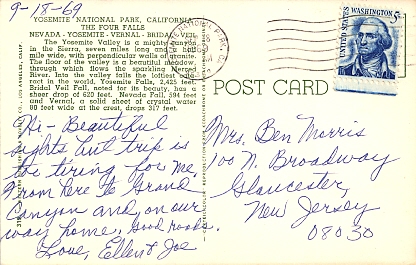 9-18-69
YOSEMITE NATIONAL PARK, CALIFORNIA
THE FOUR FALLS
NEVADA - YOSEMITE - VERNAL - BRIDAL VEIL
The Yosemite Valley is a mighty canyon
in the Sierra, seven miles long and a half
mile wide, with perpendicular walls of granite.
The floor of the valley is a beautiful meadow
through which flows the sparkling Merced
River. Into the valley falls the loftiest cata-
ract in the world, Yosemite Falls, 2,425 feet.
Bridal Veil Fall, noted for its beauty, has a
sheer drop of 620 feet. Nevada Fall, 594 feet
and Vernal, a solid sheet of crystal water
80 feet wide at the crest, drops 317 feet.
Hi - Beautiful
sights but trip is
too tiring for me
From here to Grand
Canyon and on our
way home. Good roads.
Love, Ellen & Joe
UNITED STATES
WASHINGTON
5¢
POST CARD
Mrs. Ben Morris
100 N. Broadway
Gloucester,
New Jersey
08030